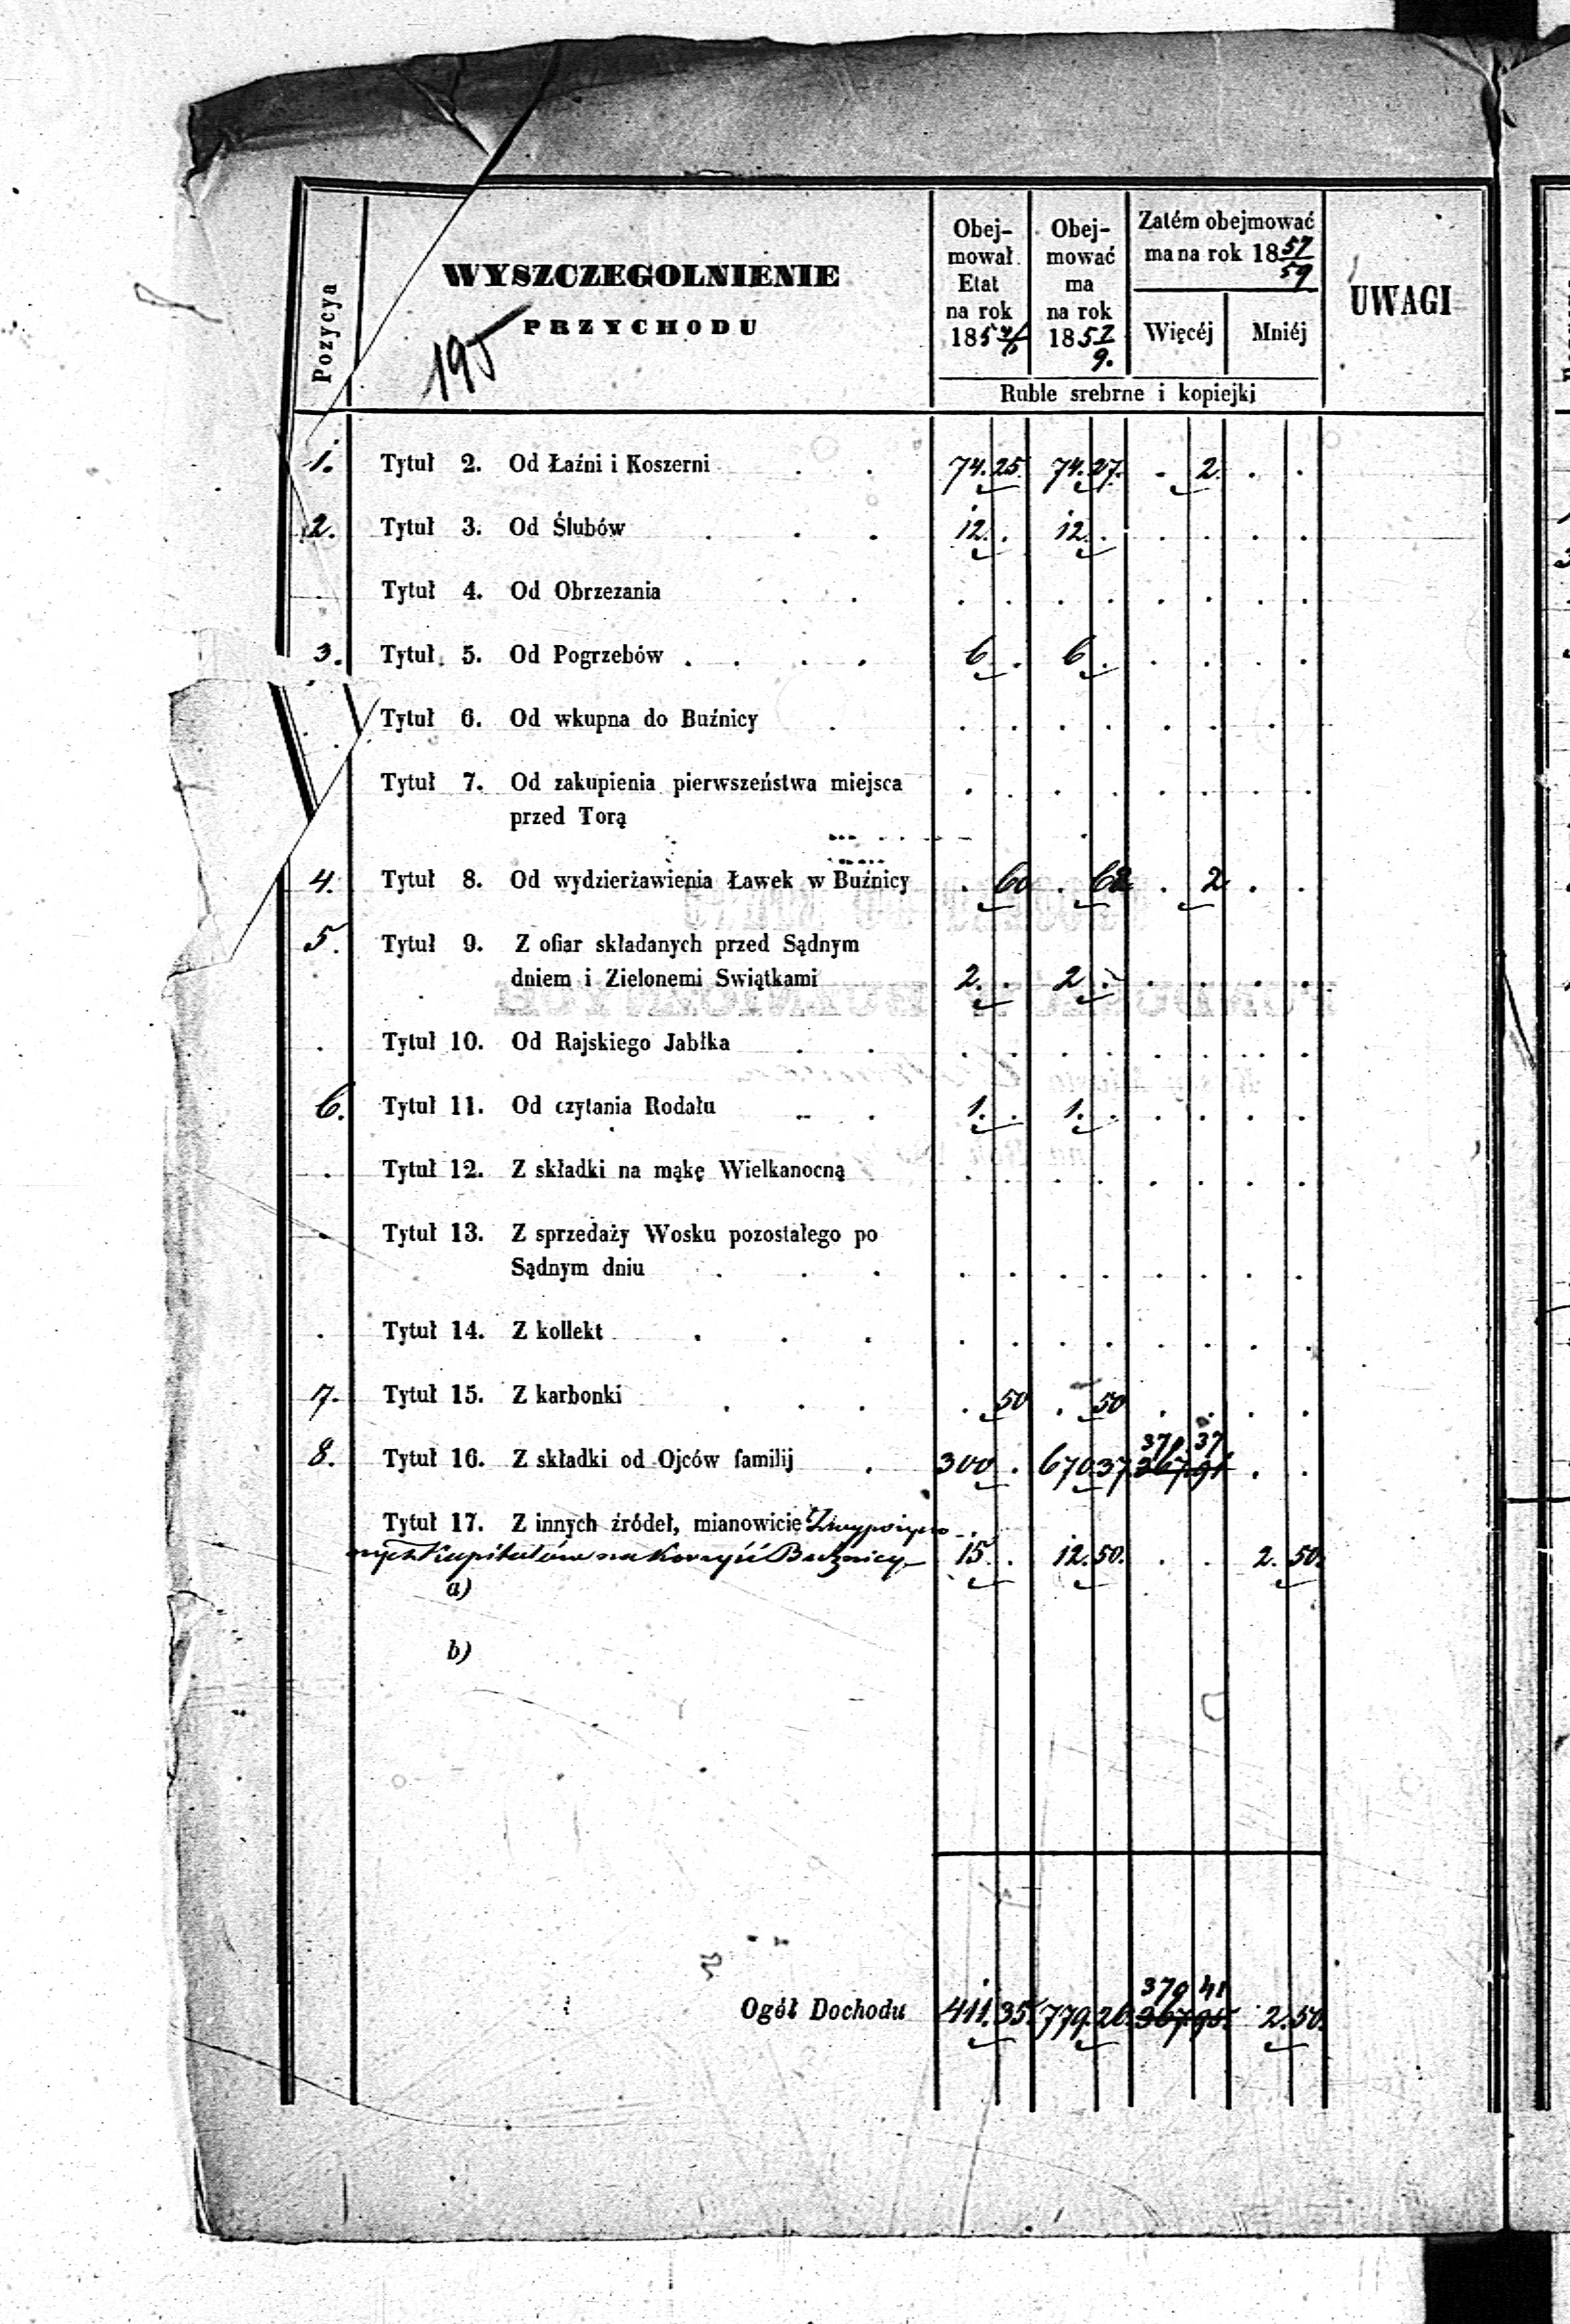 Pozycya
WYSZCZEGOLNIENIE
PRZYCHODU
195
Obej-
mował
Etat
na rok
185 4/6
Obej-
mować
ma
na rok
185 7/9.
Zatém obejmować
ma na rok 18 57/59
Więcéj Mniéj
Ruble srebrne i kopiejki
UWAGI
1. Tytuł 2. Od Łaźni i Koszerni . . 74. 25. 74. 27. . 2. . .
2. Tytuł 3. Od Ślubów . . . 12. . 12. . . . . .
Tytuł 4. Od Obrzezania . . . . . . . . . .
3. Tytuł 5. Od Pogrzebów . . . . 6. . 6. . . . . .
Tytuł 6. Od wkupna do Buźnicy . . . . . . . .
Tytuł 7. Od zakupienia pierwszeństwa miejsca
przed Torą . . . . . . . .
4. Tytuł 8. Od wydzierżawienia Ławek w Buźnicy . 60 . 62 . 2 . .
5. Tytuł 9. Z ofiar składanych przed Sądnym
dniem i Zielonemi Swiątkami 2. . 2. . . . . .
. Tytuł 10. Od Rajskiego Jabłka . . . . . . . . . .
6. Tytuł 11. Od czytania Rodału . . 1. . 1. . . . . .
. Tytuł 12. Z składki na mąkę Wielkanocną . . . . . . . .
. Tytuł 13. Z sprzedaży Wosku pozostałego po
Sądnym dniu . . . . . . . . . . .
. Tytuł 14. Z kollekt . . . . . . . . . . .
7. Tytuł 15. Z karbonki . . . . 50 . 50 . . . .
370 37
8. Tytuł 16. Z składki od Ojców familij . 300 . 670 37 367 91 . .
Tytuł 17. Z innych źródeł, mianowicie Z wypożyczo
nych Kapitałów na Korzyść Buźnicy 15. . 12. 50. . . 2. 50.
a)
b)
370 41
Ogół Dochodu 411. 35. 779. 26. 367. 95. 2. 50.